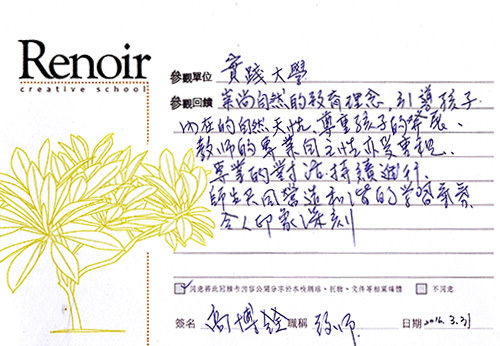 Renoir
creative school
參觀單位 實踐大學
參觀回饋 崇尚自然的教育理念,引導孩子
內在的自然天性、尊重孩子的發展、
教師的專業自主性亦受重視、
專業的對話持續進行、
師生共同營造和諧的學習氣氛、
令人印象深刻
同意將此回饋卡內容公開分享於本校網站、刊物、文件等相關媒體 不同意
簽名 高博銓 職稱 教師 日期 2016. 3. 31